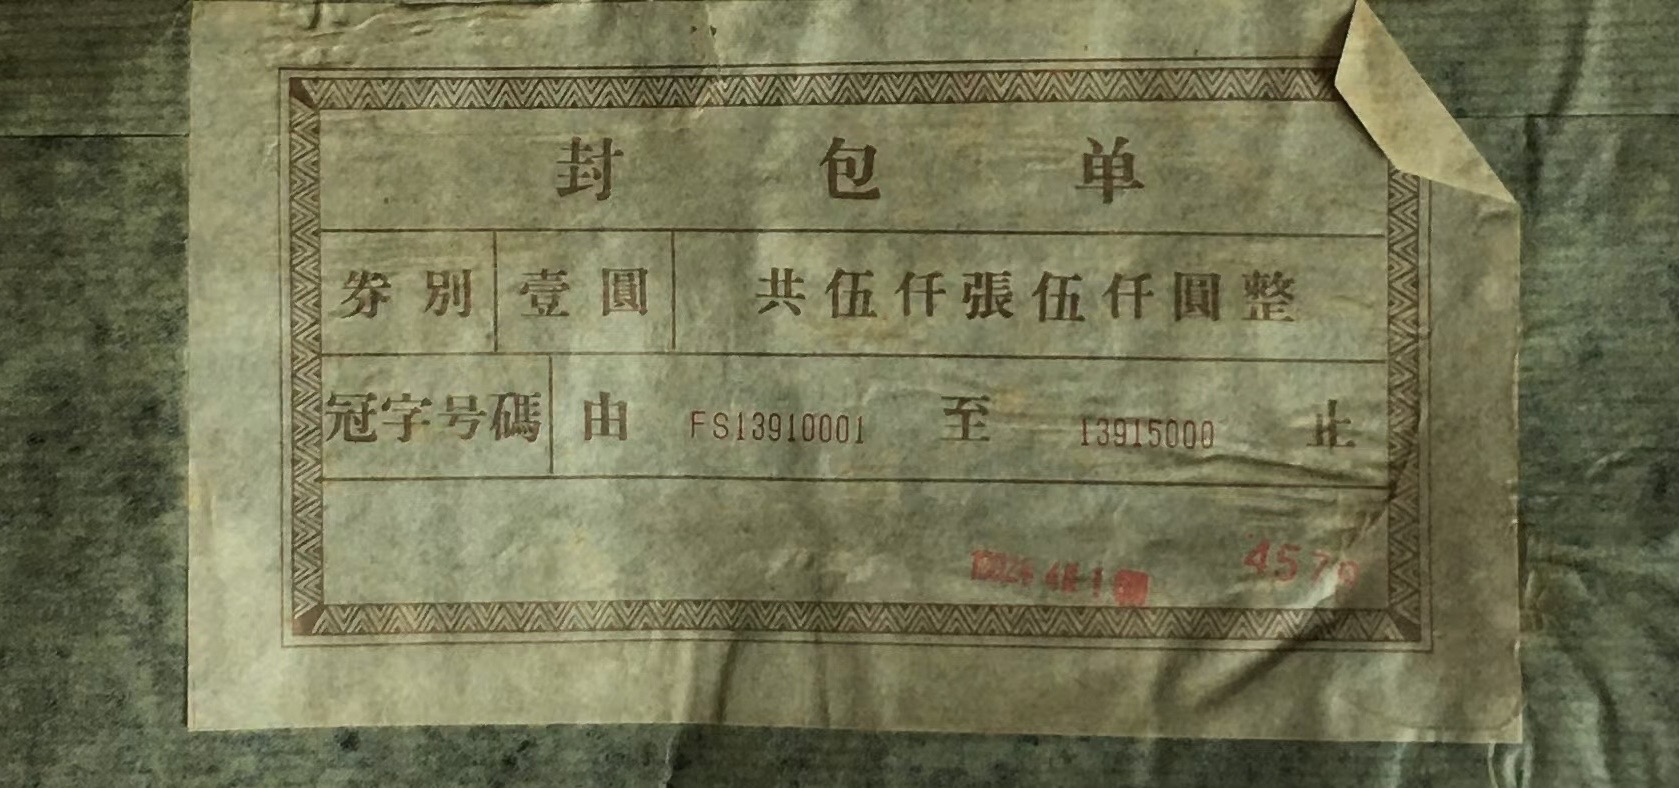 封包单
券别 壹圓 共伍仟張伍仟圓整
冠字号碼 由 FS13910001 至 13915000 止
457